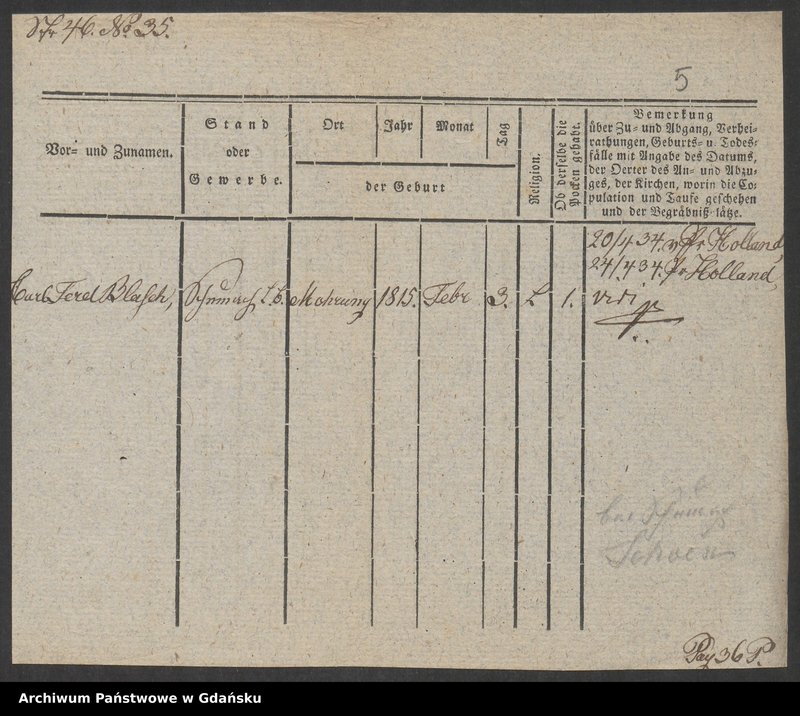 46. No 35.
5
Vor= und Zunamen.
Stand
oder
Gewerbe.
Ort
Jahr
Monat
Tag
der Geburt
Religion.
Ob derselbe die
Pocken gehabt.
Bemerkung
über Zu= und Abgang, Verhei=
rathungen, Geburts= u. Todes=
fälle mit Angabe des Datums,
der Oerter des An= und Abzu=
ges, der Kirchen, worin die Co=
pulation und Taufe geschehen
und der Begräbniß=lätze.
20/4 34. v Pr Holland,
24/4 34. Pr Holland,
Carl Ferd Blasch,
Mohrung
1815.
Febr
3.
L
1.
vidi
Schoen
Pag 36 P.
Archiwum Państwowe w Gdańsku